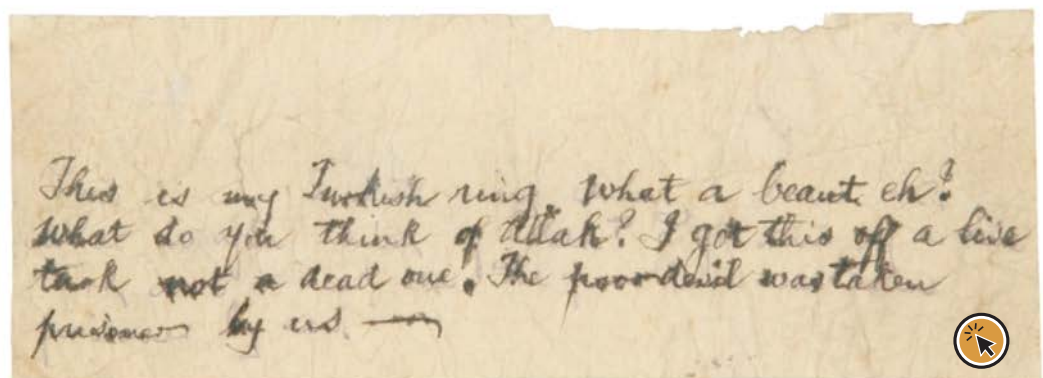 This is my Turkish ring. What a beaut. eh?
What do you think of Allah? I got this off a live
turk not a dead one. The poor devil was taken
prisoner by us. —